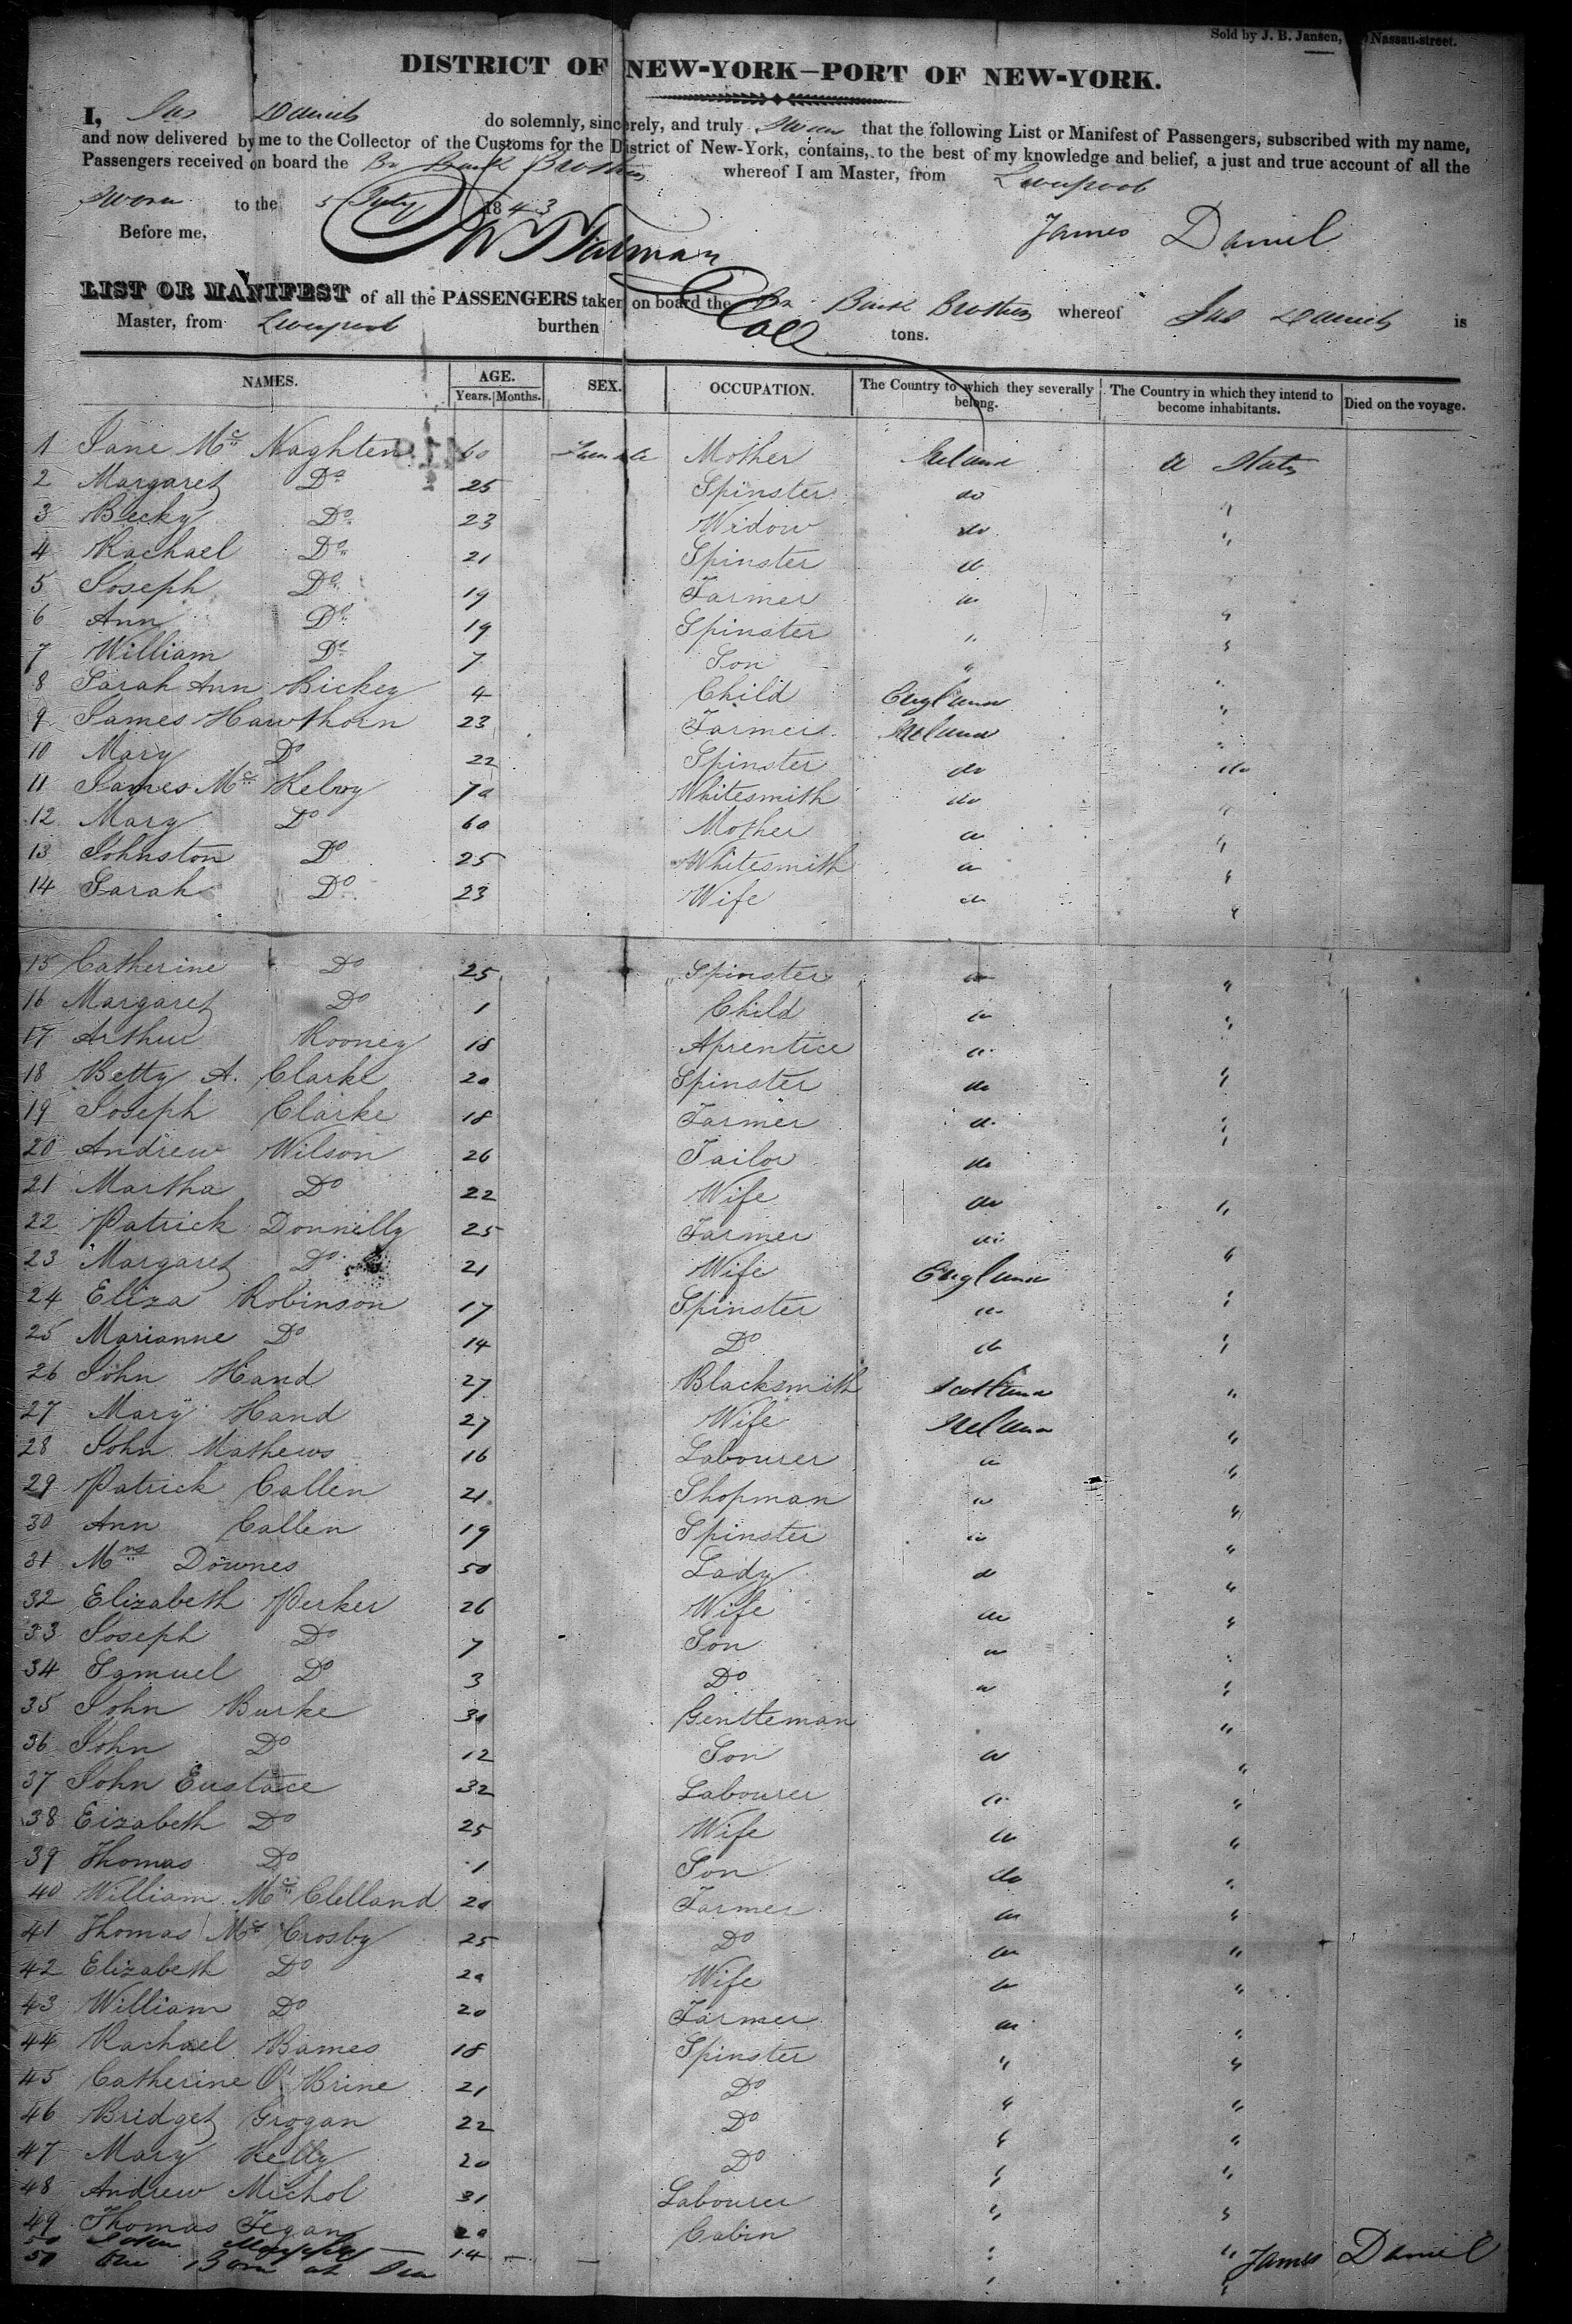 Sold by J. B. Jansen, Nassau-street.
DISTRICT OF NEW-YORK—PORT OF NEW-YORK.
I, Jas Daniels do solemnly, sincerely, and truly swear that the following List or Manifest of Passengers, subscribed with my name,
and now delivered by me to the Collector of the Customs for the District of New-York, contains, to the best of my knowledge and belief, a just and true account of all the
Passengers received on board the Br Bark Brothers whereof I am Master, from Liverpool
Sworn to the 5 July 1843
Before me, James Daniel
LIST OR MANIFEST of all the PASSENGERS taken on board the Br Bark Brothers whereof Jas Daniels is
Master, from Liverpool burthen tons.
NAMES. AGE. Years. Months. SEX. OCCUPATION. The Country to which they severally belong. The Country in which they intend to become inhabitants. Died on the voyage.
1 Jane Mc Naghten 60 Female Mother Ireland U States
2 Margaret Do 25 Spinster do
3 Becky Do 23 Widow do "
4 Rachael Do 21 Spinster do "
5 Joseph Do 19 Farmer do
6 Ann Do 19 Spinster " "
7 William Do 7 Son " "
8 Sarah Ann Bickey 4 Child England "
9 James Hawthorn 23 Farmer Ireland "
10 Mary Do 22 Spinster do "
11 James Mc Kelvey 70 Whitesmith do do
12 Mary Do 60 Mother do "
13 Johnston Do 25 Whitesmith do "
14 Sarah Do 23 Wife do "
15 Catherine Do 25 Spinster do "
16 Margaret Do 1 Child do "
17 Arthur Rooney 18 Aprentice do
18 Betty A. Clarke 20 Spinster do "
19 Joseph Clarke 18 Farmer do "
20 Andrew Wilson 26 Tailor do "
21 Martha Do 22 Wife do "
22 Patrick Donnelly 25 Farmer do
23 Margaret Do 21 Wife England "
24 Eliza Robinson 17 Spinster do "
25 Marianne Do 14 Do do "
26 John Hand 27 Blacksmith Scotland "
27 Mary Hand 27 Wife Ireland "
28 John Mathews 16 Labourer do "
29 Patrick Callen 21 Shopman do "
30 Ann Callen 19 Spinster do "
31 Mrs Downes 50 Lady do "
32 Elizabeth Perker 26 Wife do "
33 Joseph Do 7 Son do "
34 Samuel Do 3 Do do "
35 John Burke 30 Gentleman "
36 John Do 12 Son do "
37 John Eustace 32 Labourer do "
38 Eizabeth Do 25 Wife do "
39 Thomas Do 1 Son do "
40 William Mc Clelland 20 Farmer do "
41 Thomas Mc Crosby 25 Do do "
42 Elizabeth Do 20 Wife do "
43 William Do 20 Farmer do "
44 Rachael Bames 18 Spinster " "
45 Catherine O'Brine 21 Do " "
46 Bridget Grogan 22 Do " "
47 Mary Kelly 20 Do " "
48 Andrew Michol 31 Labourer " "
49 Thomas Fegan 20 Cabin " "
50 John Murphy 14 " "
51 One Born at Sea James Daniel